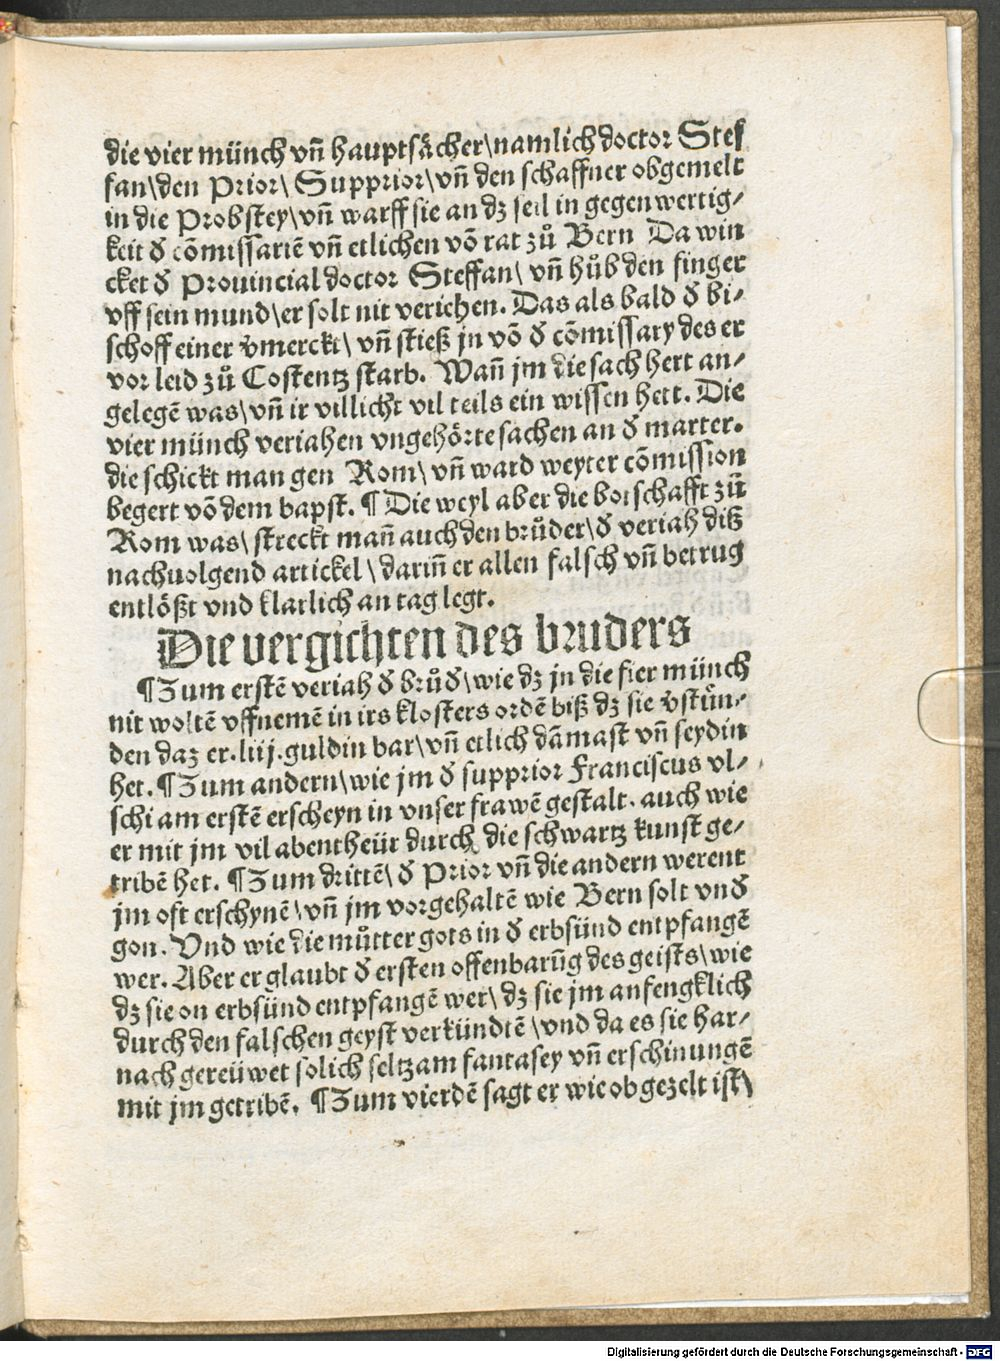 die vier münch vñ hauptsächer\namlich doctor Stef
fan\den Prior\ Supprior\vñ den schaffner obgemelt
in die Probstey\vñ warff sie an dz seil in gegenwertig⸗
keit d̕ cõmissariẽ vñ etlichen võ rat zů Bern Da win
cket d̕ Prouincial doctor Steffan\ vñ hůb den finger
vff sein mund\er solt nit veriehen. Das als bald d̕ bi⸗
schoff einer v̕merckt\ vñ stieß jn võ d̕ cõmissary des er
vor leid zů Costentz starb. Wañ jm die sach hert an⸗
gelegẽ was\vñ ir villicht vil teils ein wissen hett. Die
vier münch veriahen vngehörte sachen an d̕ marter.
die schickt man gen Rom\ vñ ward weyter cõmission
begert võ dem bapst. ¶ Die weyl aber die botschafft zů
Rom was\ streckt mañ auch den brůder\d̕ veriah diß
nachuolgend artickel\ dariñ er allen falsch vñ betrug
entlößt vnd klarlich an tag legt.
Die vergichten des bruders
¶Zum erstẽ veriah d̕ brůd̕\wie dz jn die fier münch
nit woltẽ vffnemẽ in irs klosters ordẽ biß dz sie v̕stůn⸗
den daz er.liij.guldin bar\vñ etlich dãmast vñ seydin
het. ¶Zum andern\wie jm d̕ supprior Franciscus vl⸗
schi am erstẽ erscheyn in vnser frawẽ gestalt. auch wie
er mit jm vil abentheür durch die schwartz kunst ge⸗
tribẽ het. ¶Zum drittẽ\ d̕ Prior vñ die andern werent
jm oft erschynẽ\vñ jm vorgehaltẽ wie Bern solt vnd̕
gon. Vnd wie die můtter gots in d̕ erbsünd entpfangẽ
wer. Aber er glaubt d̕ ersten offenbarũg des geists\wie
dz sie on erbsünd entpfangẽ wer\ dz sie jm anfengklich
durch den falschen geyst verkündtẽ\vnd da es sie har⸗
nach gereüwet solich seltzam fantasey vñ erschinungẽ
mit jm getribẽ. ¶Zum vierdẽ sagt er wie obgezelt ist\
Digitalisierung gefördert durch die Deutsche Forschungsgemeinschaft - DFG